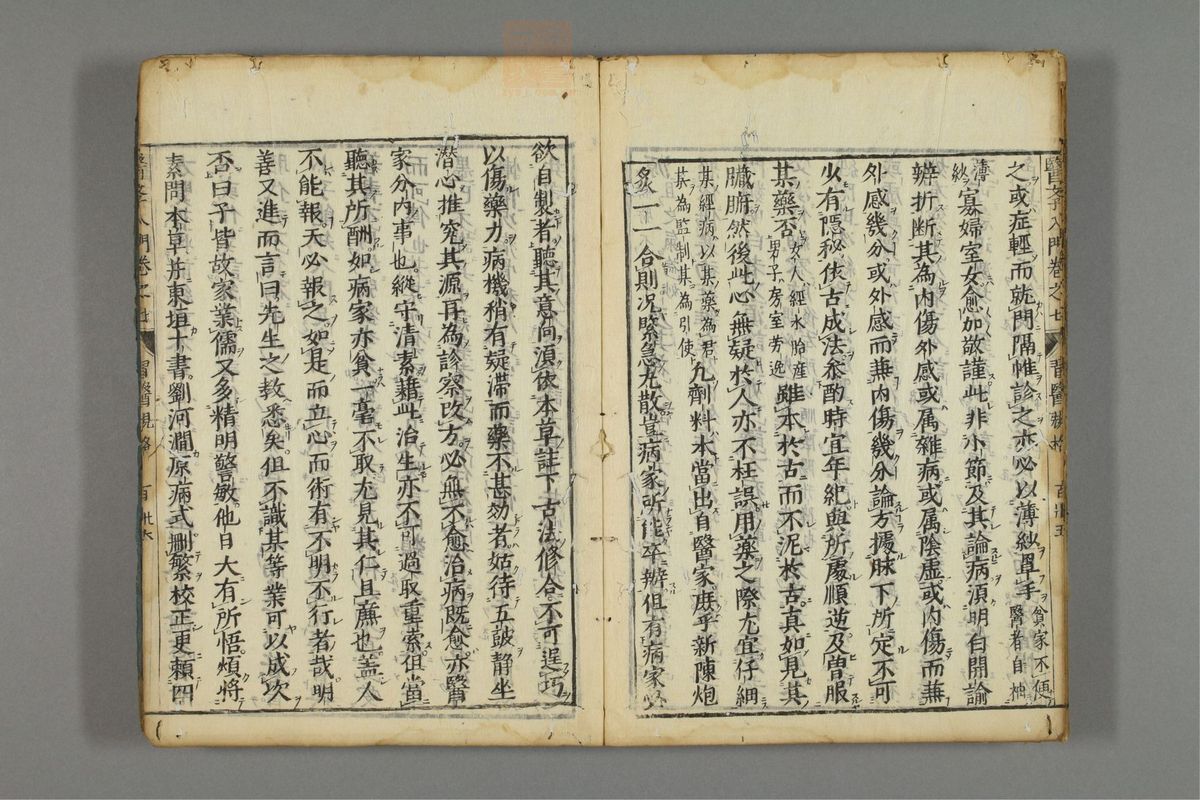 醫斈入門卷之七　習醫規格　百卅五
之或症輕而就門隔帷診之亦必以薄紗罩手貧家不便醫者自袖
薄紗寡婦室女愈加敬謹此非小節及其論病湏明白開諭
辨折斷其為内傷外感或属雜病或属陰虚或内傷而兼
外感幾分或外感而兼内傷幾分論方據脉下所定不可
少有隠秘依古成法叅酌時宜年紀與所處順逆及曽服
某藥否女人經水胎産男子房室劳逸雖本於古而不泥於古真如見其
臓腑然後此心無疑於人亦不枉誤用藥之際尤宜仔細
某經病以某藥為君某為監制某為引使九劑料本當出自醫家庻乎新陳炮
炙一一合則况緊急尤散豈病家所能卒辨但有病家必
欲自製者聽其意向湏依本草註下古法修合不可逞巧
以傷藥力病機稍有疑滞而藥不甚効者姑待五皷静坐
潜心推究其源再為診察改方必無不愈治病既愈亦醫
家分内事也縱守清素藉此治生亦不可過取重索但當
聽其所酬如病家亦貧一毫不取尤見其仁且廉也盖人
不能報天必報之如是而立心而術有不明不行者哉明
善又進而言曰先生之教悉矣但不識某等業可以成次
否曰子皆故家業儒又多精明警敏他日大有所悟煩將
素問本草并東垣十書劉河澗原病式刪繁校正更頼四
醫斈入門卷之七　習醫規格　百卅六